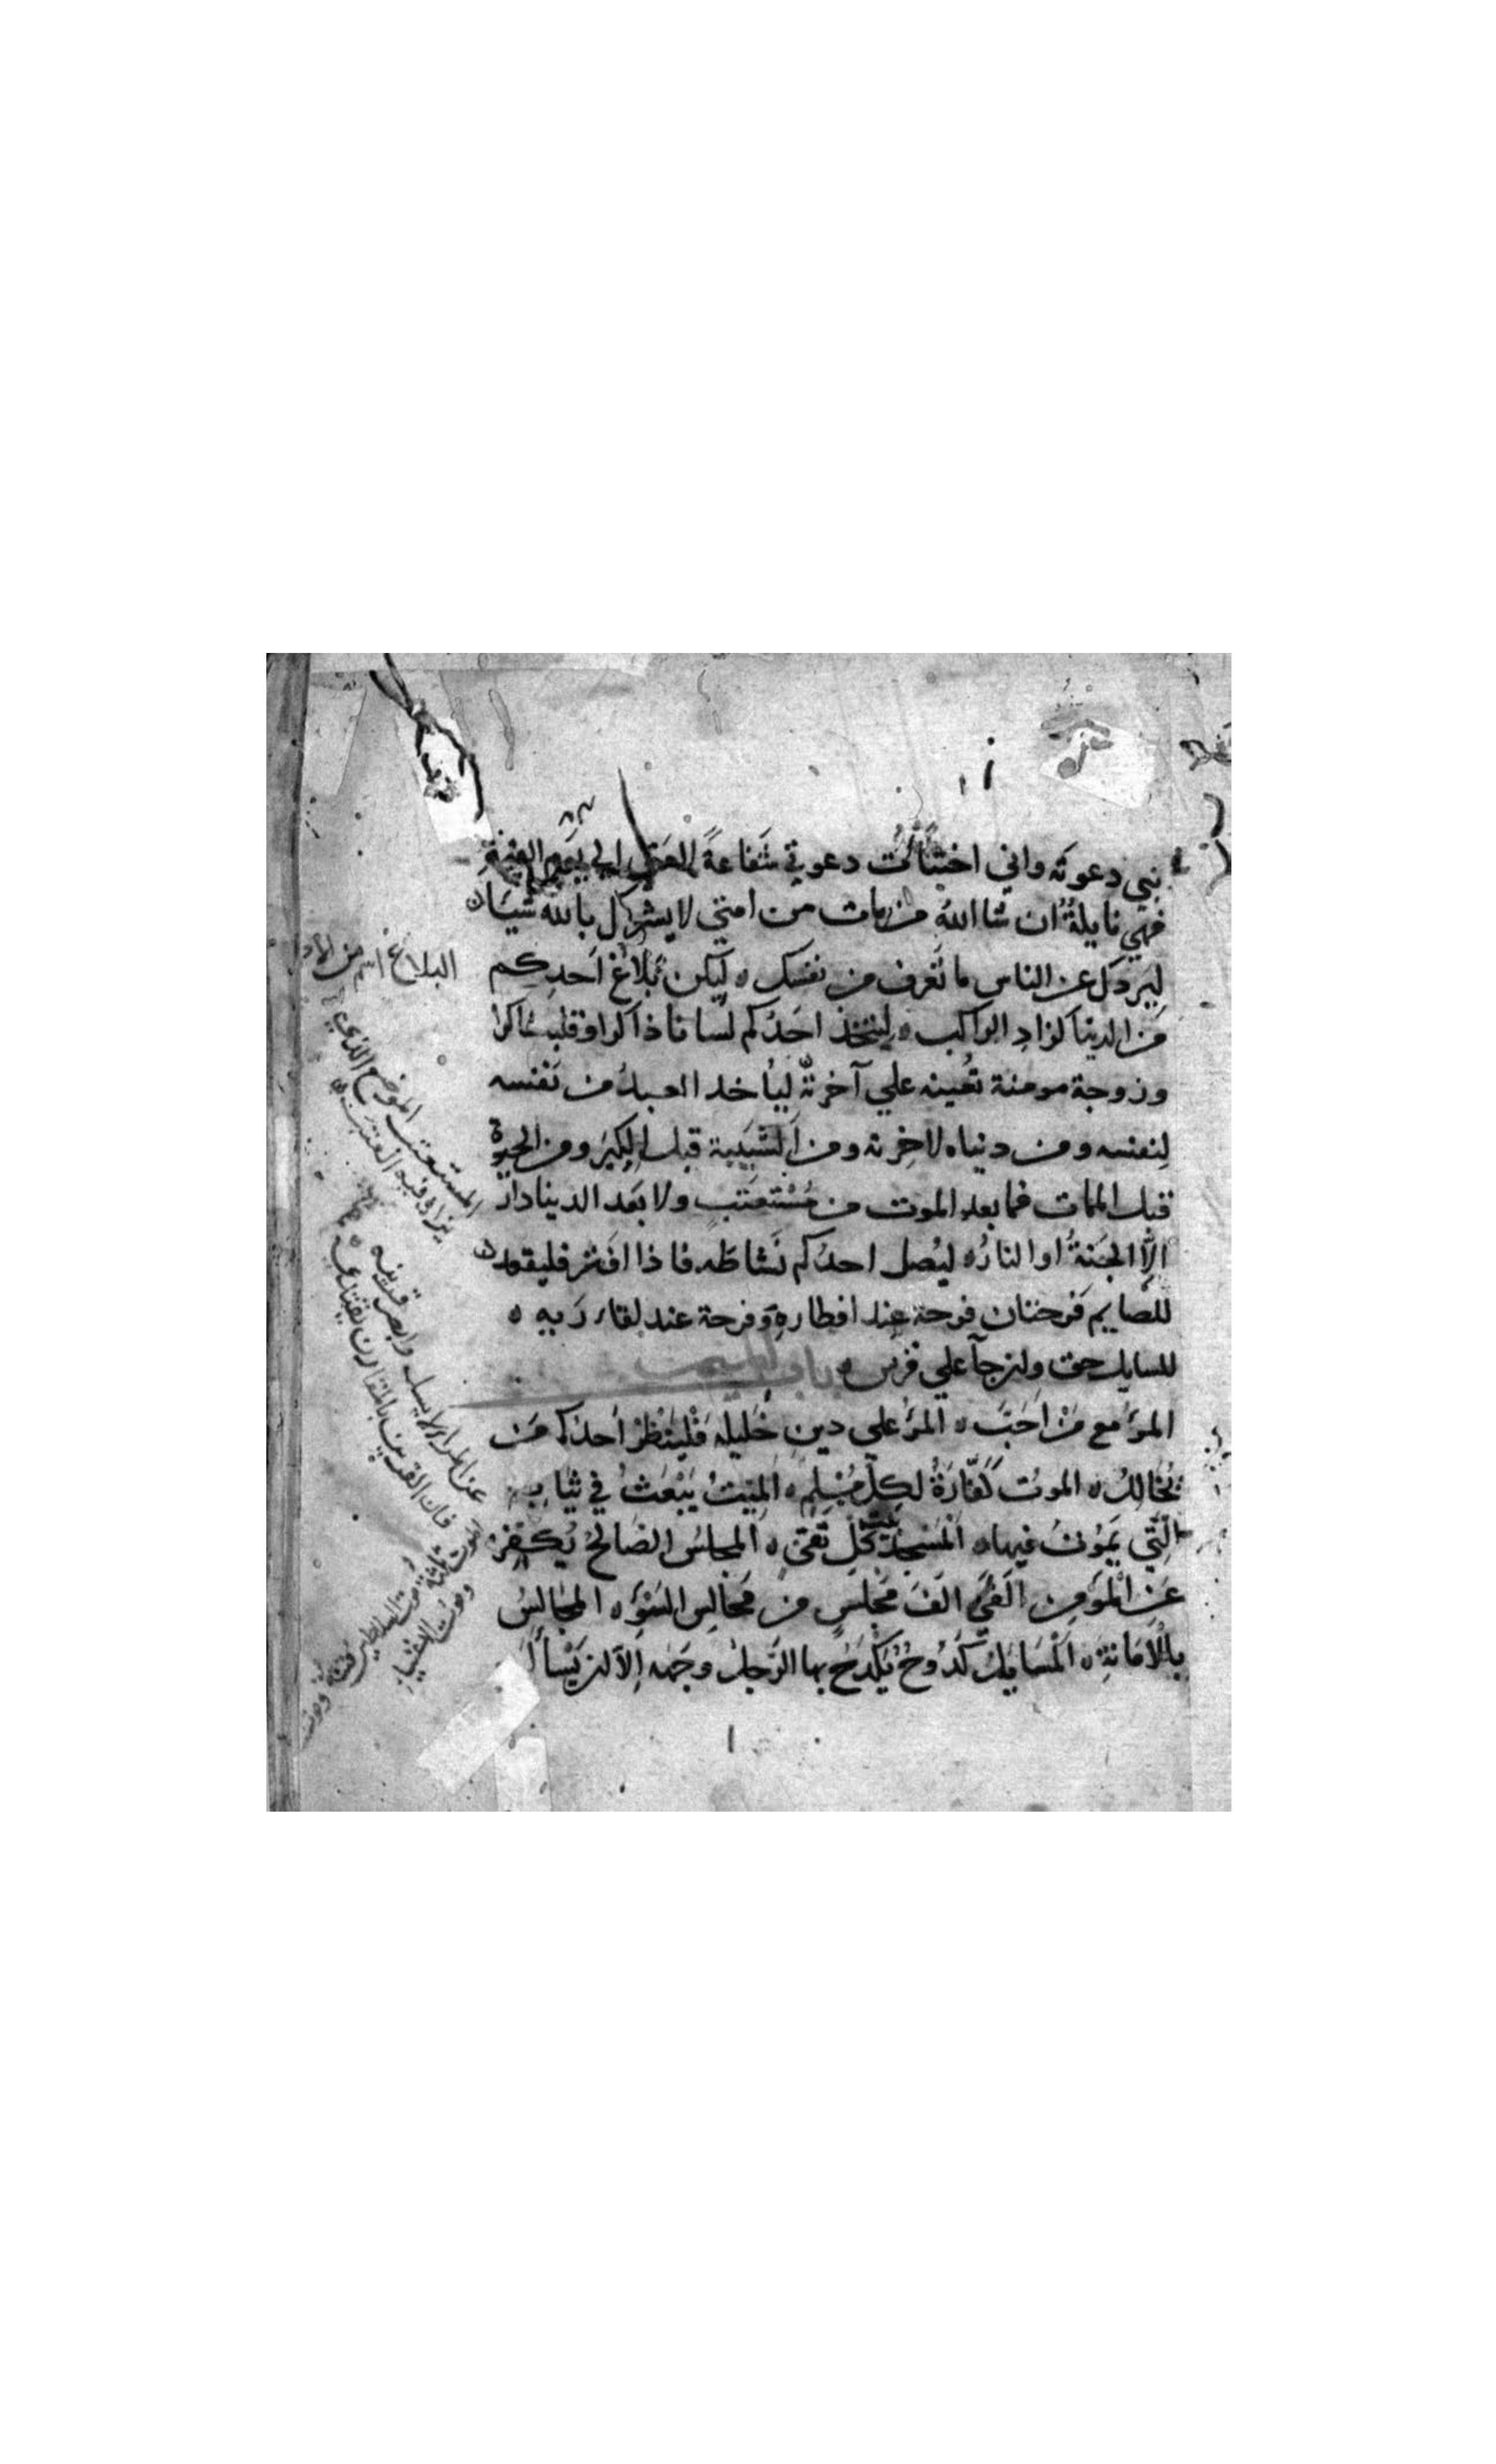 نبي دعوته واني اختبأت دعوتي شفاعة الي يوم القيمة
فهي نايلة ان شا الله من مات من امتي لا يشرك بالله شيئا ه
ليردك عن الناس ما تعرف من نفسك ه ليكن بلاغ احدكم
من الدنيا كزاد الراكب ه ليتخذ احدكم لسانا ذاكرا وقلبا شاكرا
وزوجة مومنة تعينه علي آخرته ليأخذ العبد من نفسه
لنفسه ومن دنياه لاخرته ومن الشبيبة قبل الكبر ومن الحيوة
قبل الممات فما بعد الموت من مستعتب ولا بعد الدنيا دار
إلا الجنة او النار ه ليصل احدكم نشاطه فاذا افتر فليقعد ه
للصايم فرحتان فرحة عند افطاره وفرحة عند لقاء ربه ه
للسايل حق وان جآ علي فرس ه باب الميم
المرؤ مع من احب ه المرؤ علي دين خليله فلينظر احدكم من
يخالل ه الموت كفارة لكل مسلم ه الميت يبعث في ثيابه
التي يموت فيها ه المسجد بيت كل تقي ه المجلس الصالح يكفر
عن المؤمن الفي الف مجلس من مجالس السؤ ه المجالس
بالأمانة ه المسايل كدوح يكدح بها الرجل وجهه الا ان يسأل
البلاغ اسم من
المستعتب الموضع الذي
يزاد فيه العتب
عن المرء لا يسل وابصر قرينه
فان القرين بالمقارن يقتدي ه